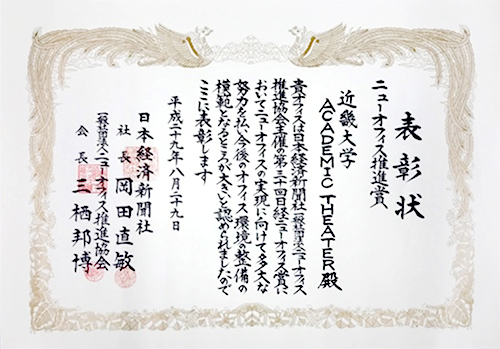 表彰状
ニューオフィス推進賞
近畿大学
ACADEMIC THEATER殿
貴オフィスは日本経済新聞社 一般社団法人ニューオフィス
推進協会主催の第三十回日経ニューオフィス賞に
おいてニューオフィスの実現に向けて多大な
努力を払い今後のオフィス環境の整備の
模範となるところが大きいと認められましたので
ここに表彰します
平成二十九年八月二十九日
日本経済新聞社
社長 岡田直敏
一般社団法人ニューオフィス推進協会
会長 三栖邦博